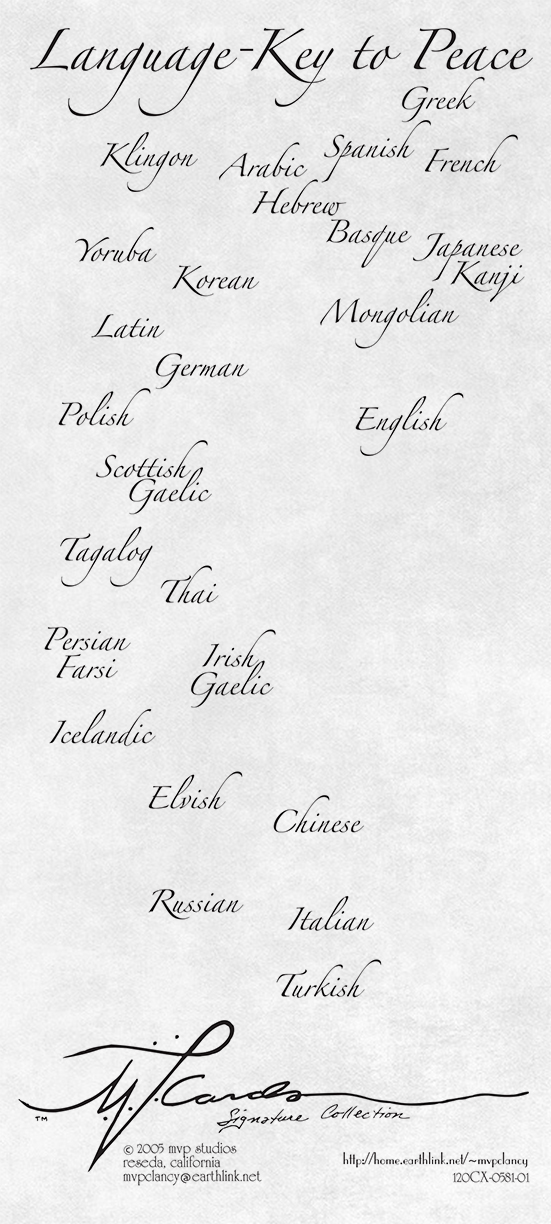 Language-Key to Peace
Greek
Klingon
Arabic
Spanish
French
Hebrew
Basque
Japanese
Kanji
Yoruba
Korean
Mongolian
Latin
German
Polish
English
Scottish
Gaelic
Tagalog
Thai
Persian
Farsi
Irish
Gaelic
Icelandic
Elvish
Chinese
Russian
Italian
Turkish
Cards
Signature Collection
TM
© 2005 mvp studios
reseda, california
mvpclancy@earthlink.net
http://home.earthlink.net/~mvpclancy
120CX-0581-01